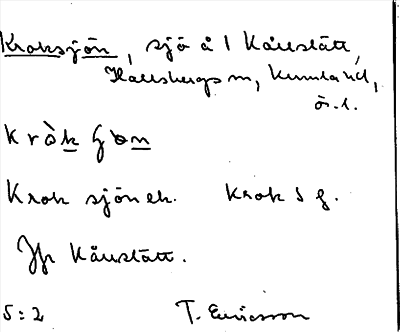 Kroksjön, sjö å 1 Kårstätt,
Hallsbergs sn, Kumla hd,
ör. l.
Kroksjön ek. Krok s g.
Jfr Kårstätt.
5:2 T. Ericsson